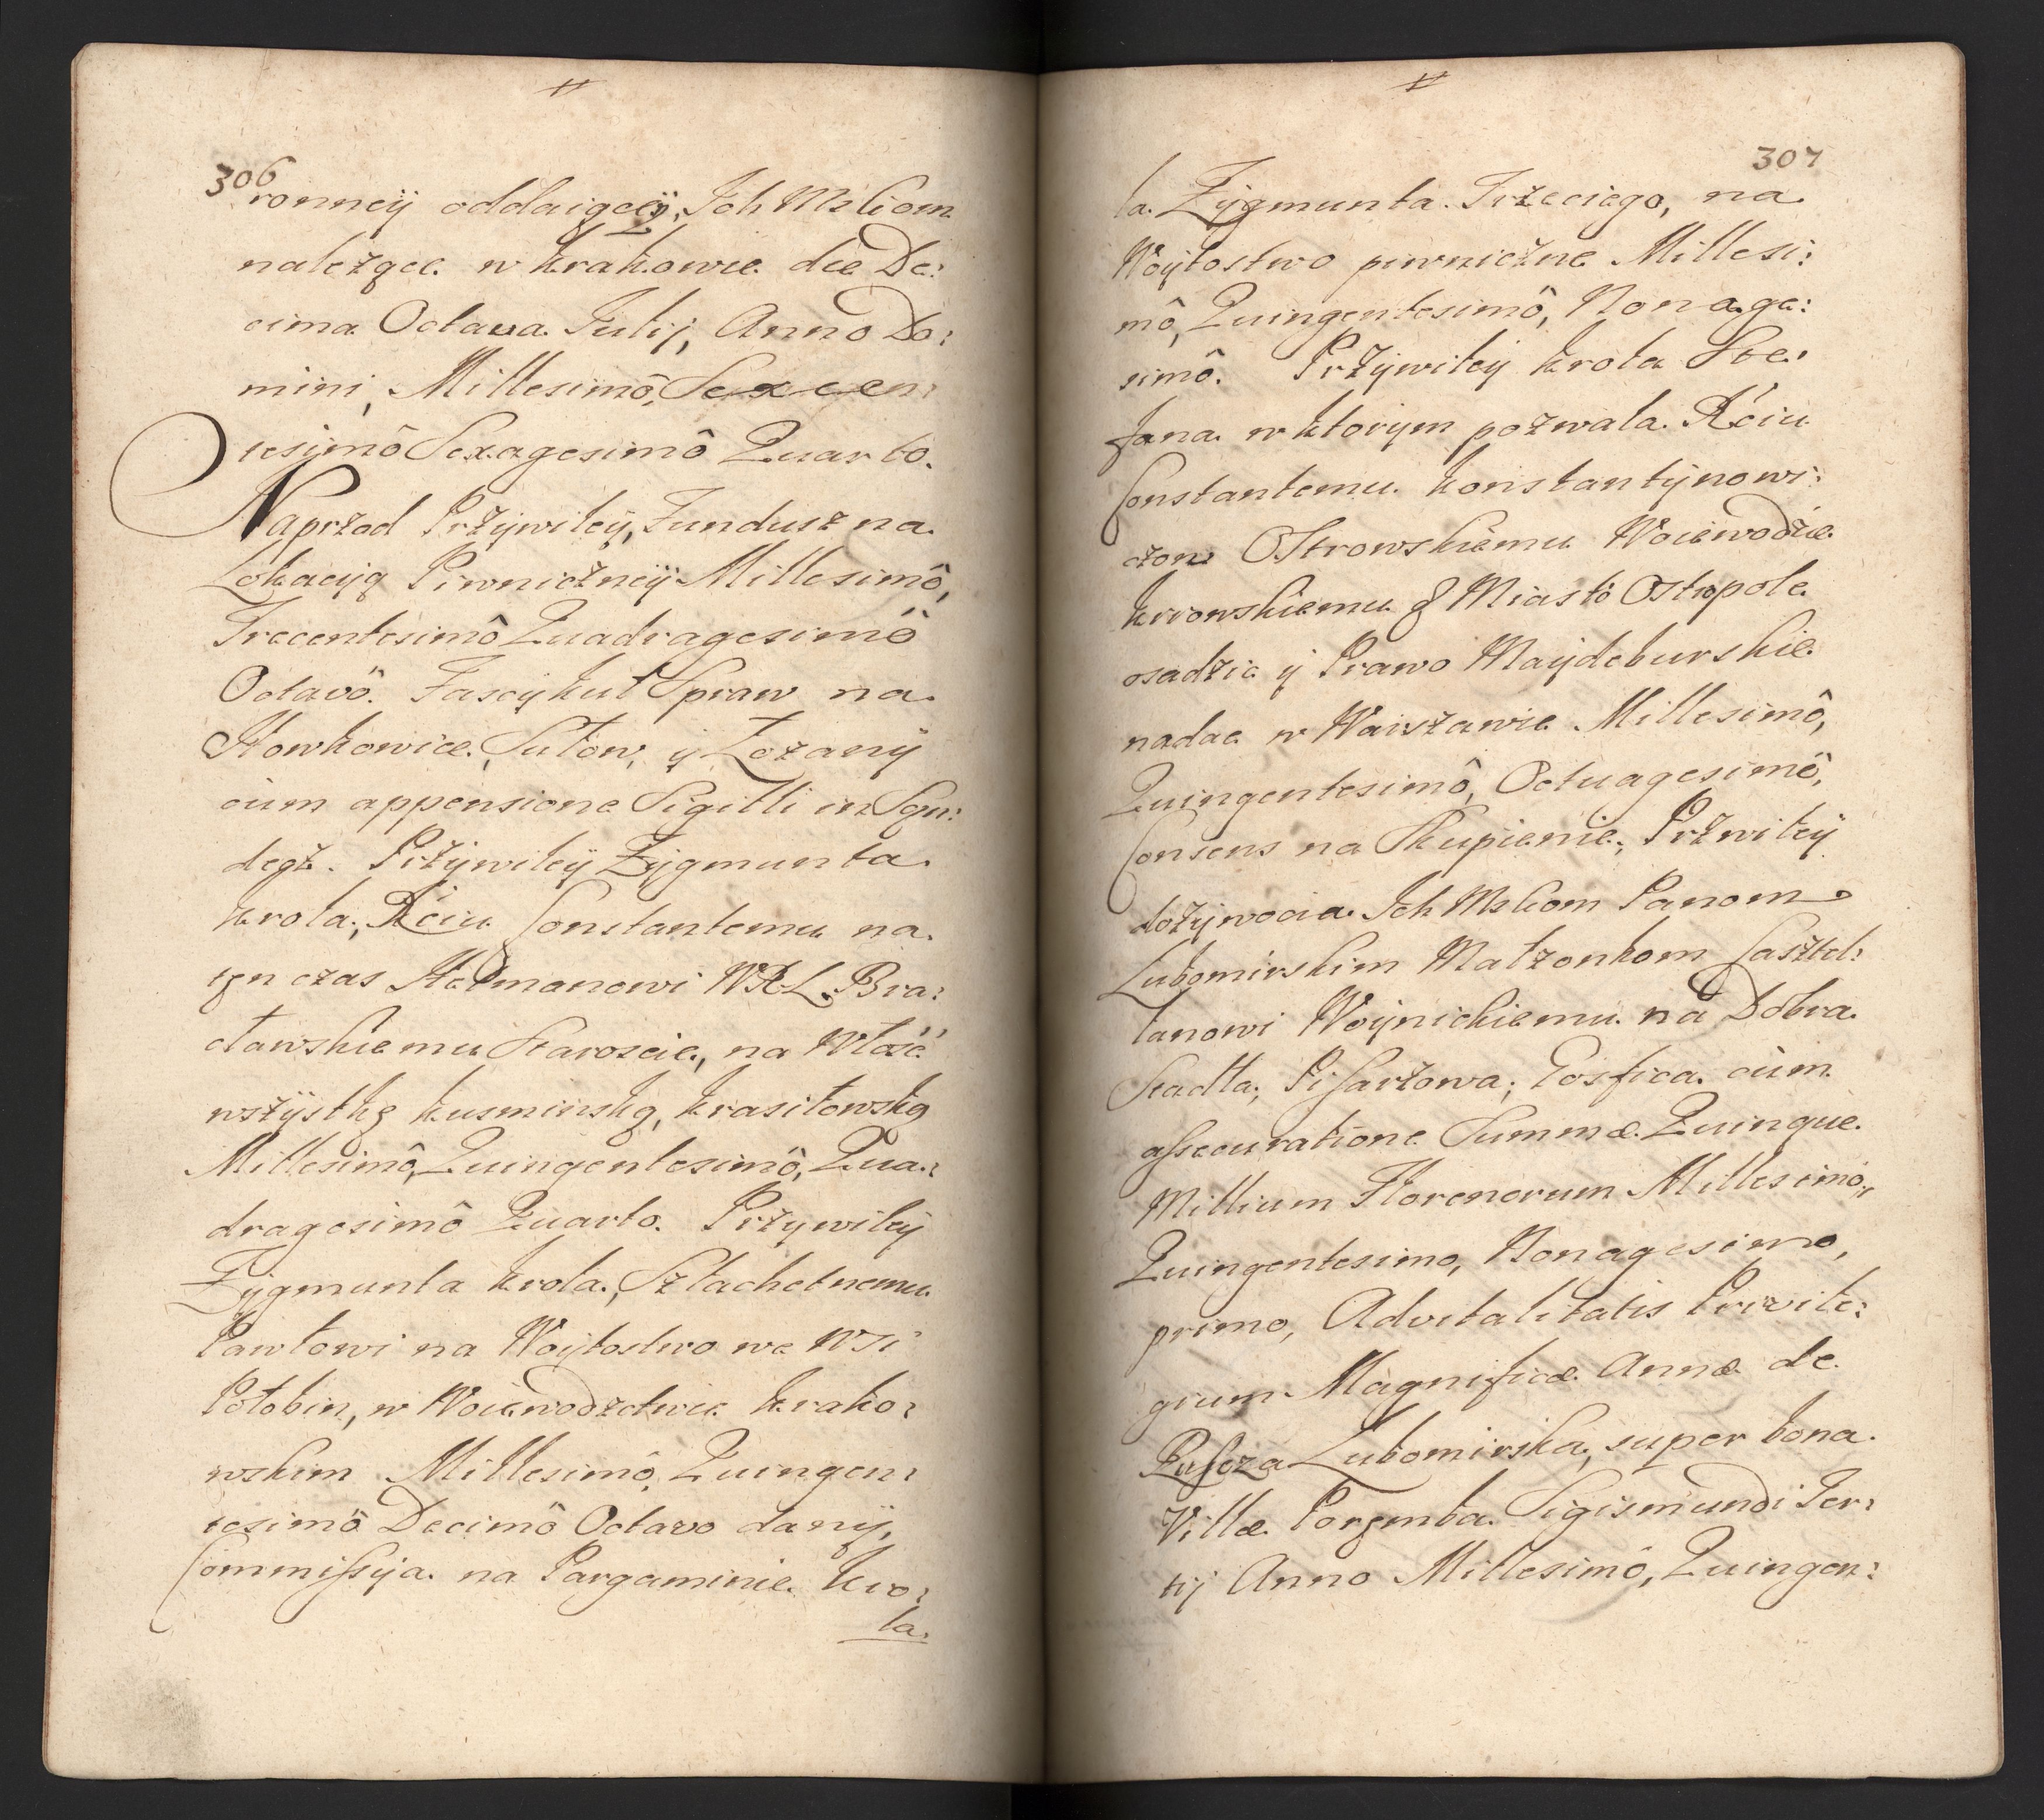 306
ronneÿ oddaiącey, Ich Mściom
należące w Krakowie die De:
cima Octaua Julij, Anno Do:
mini, Millesimô, Sexcen:
tesimô Sexagesimô Quarto.
Naprżod Prżywileÿ, Fundusz na
Lokacyią Piwnicżneÿ Millesimô,
Trecentesimô Quadragesimô
Octavô. Fascykuł Spraw na
Howkowice, Sutow, y Łozany
cùm appensione Sigilli in Sąn:
degż. Prżywileÿ Zygmunta
Krola, Xćiu Constantemu na
tęn czas Hetmanowi W X L. Bra:
cławskiemu Staroscie, na Włość
wszÿstkę Kusminską, Krasiłowską
Millesimô, Quingentesimô, Qua:
dragesimô Quarto. Prżywileÿ
Zygmunta Krola, Szlachetnemu
Pawłowi na Woytostwo we Wsi
Połobin, w Woiewodzctwie Krako:
wskim Millesimô, Quingen:
tesimô Decimô Octavo dany,
Commissyia na Pargaminie Kro:
la.
307
la Zygmunta Trzeciego, na
Woytostwo piwnicżne Millesi:
mô, Quingentesimô, Nonage:
simô. Prżywiley Krola Ste:
fana w ktorym pozwala Xćiu
Constantemu Konstantynowi:
czowi Ostrowskiemu Woiewodzie
Kiiowskiemu Miasto Ostropole
osadzic y Prawo Maydeburskie
nadac w Warszawie Millesimô,
Quingentesimô, Octuagesimô,
Consens na Skupienie, Prżwiley
dożywocia Ich Mściom Panom
Lubomirskim Małzonkom Casztel:
lanowi Woynickiemu na Dobra
Stadła, Pisarżowa, Gosfica cùm
assecuratione Summæ Quinque
Millium Florenorum Millesimo,
Quingentesimo, Nonagesimo,
primo, Advitalitatis Privile:
gium Magnificæ Annæ de
Ruszcza Lubomirska, super bona
Villæ Poręmba Sigismundi Ter:
tij Anno Millesimô, Quingen: